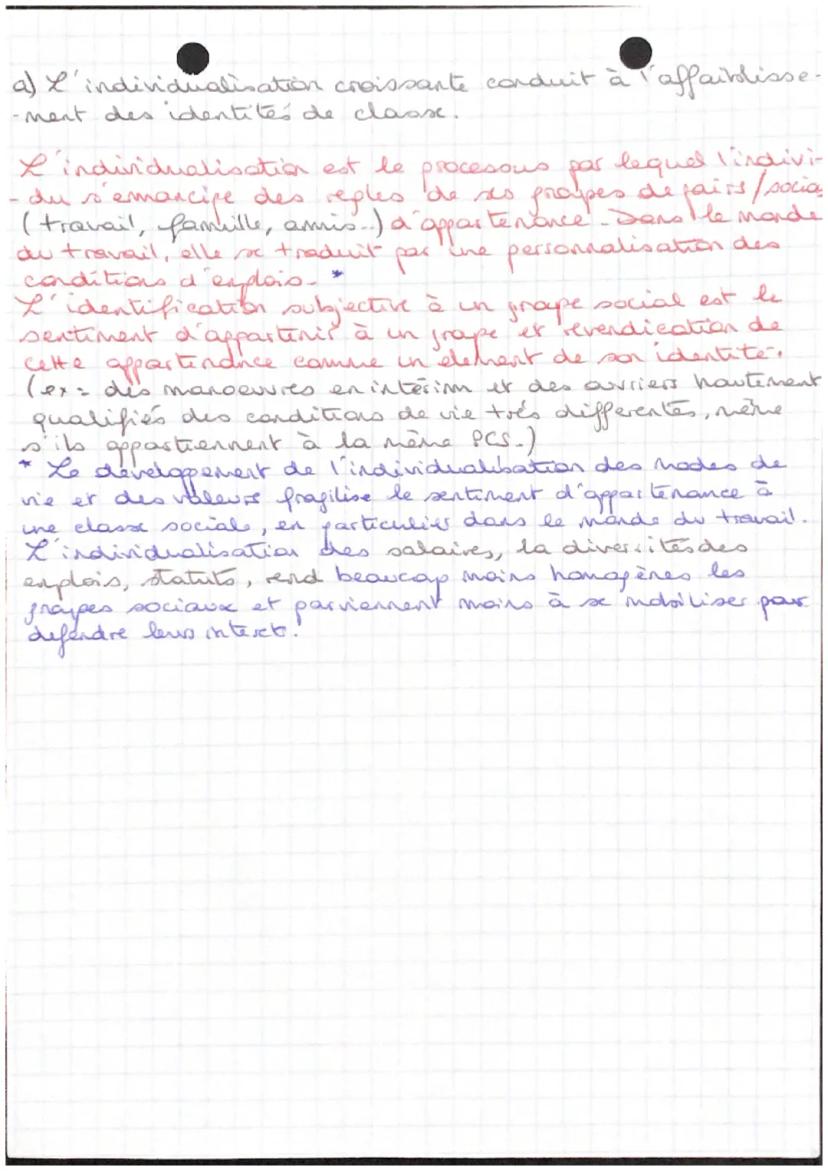 a) L'individualisation croissante conduit à l'affaiblisse-
-ment des identités de classe.
L'individualisation est le processus par lequel l'indivi-
-du s'emancipe des règles de ses groupes de pairs/socia
(travail, famille, amis..) d'appartenance. Dans le monde
du travail, elle se traduit par une personnalisation des
conditions d'emplois. *
L'identification subjective à un groupe social est le
sentiment d'appartenir à un groupe et revendication de
cette appartenance comme un element de son identité.
(ex= des manoeuvres en intérim et des ouvriers hautement
qualifiés des conditions de vie très differentes, même
s'ils appartiennent à la même PCS.)
* Le developpement de l'individualisation des modes de
vie et des valeurs fragilise le sentiment d'appartenance à
une classe sociale, en particulier dans le monde du travail.
L'individualisation des salaires, la diversités des
emplois, statuts, rend beaucoup moins homogènes les
groupes sociaux et parviennent moins à se mobiliser pour
defendre leurs interets.